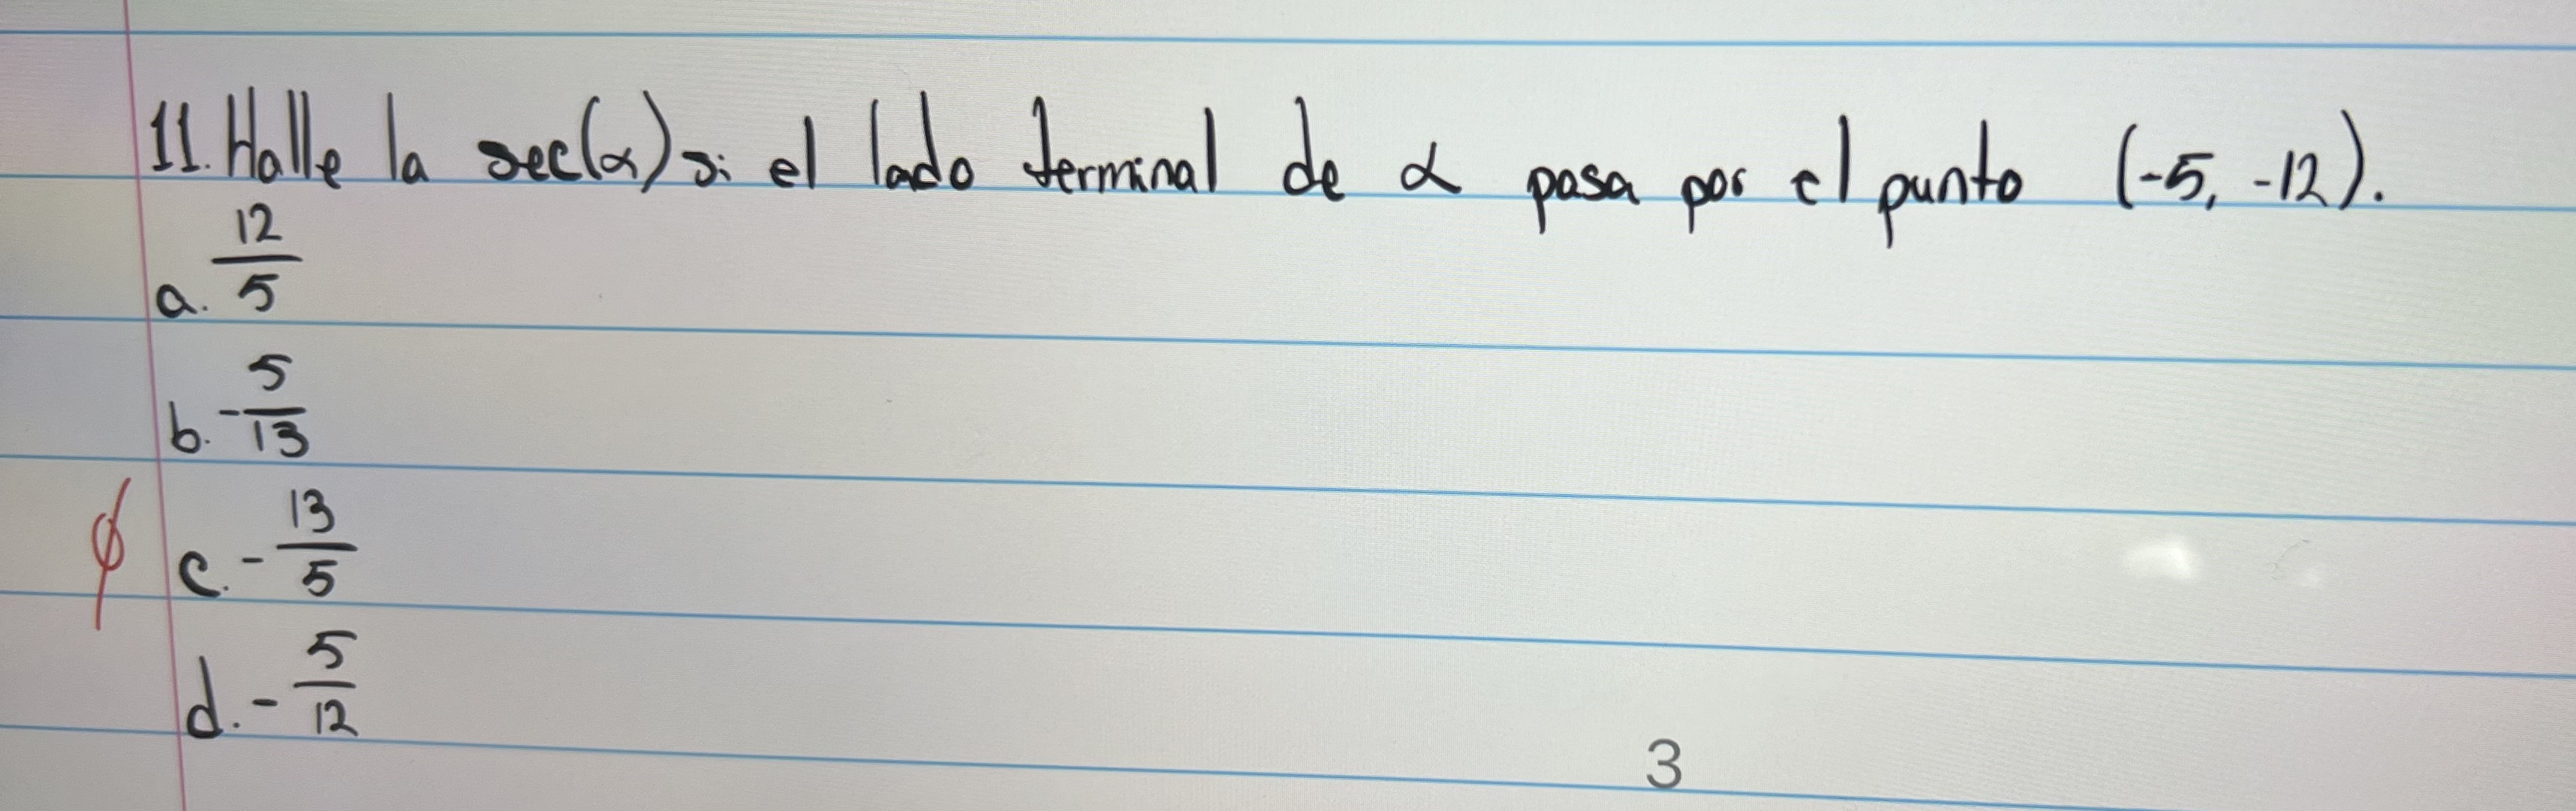 11. Halle la sec(α) si el lado terminal de α pasa por el punto (-5, -12).
a. 12/5
b. -5/13
c. -13/5
d. -5/12
3